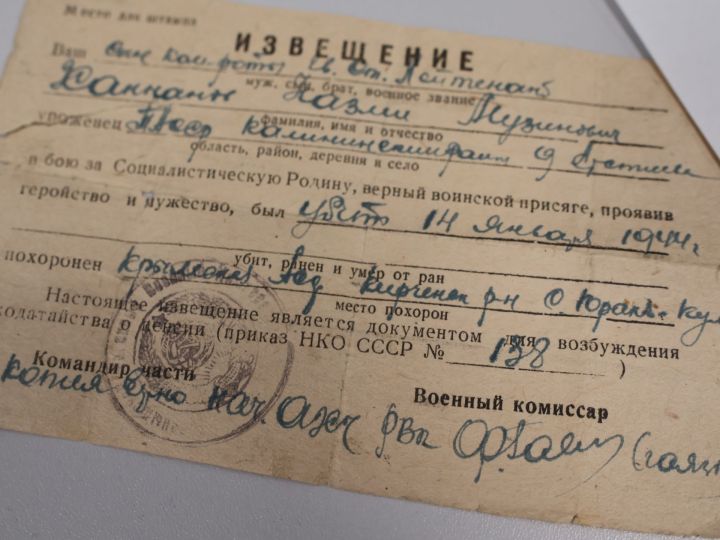 Место для штампа
ИЗВЕЩЕНИЕ
Ваш сын ст. Лейтенант
муж, сын, брат, военное звание
Ханнанов Назми Музинович
фамилия, имя и отчество
уроженец ТАССР Калининский район д
область, район, деревня и село
в бою за Социалистическую Родину, верный воинской присяге, проявив
геройство и мужество, был убит 14 января 1944 г.
убит, ранен и умер от ран
похоронен Крымская АССР р-н с.
место похорон
Настоящее извещение является документом для возбуждения
ходатайства о пенсии (приказ НКО СССР № 138 )
Командир части
Военный комиссар
копия верно нач.